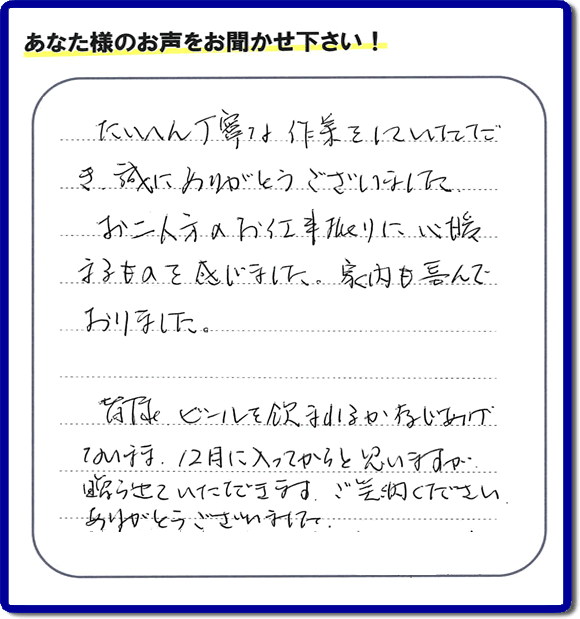 あなた様のお声をお聞かせ下さい！
たいへん丁寧な作業をしていただ
き、誠にありがとうございました。
お二人方のお仕事振りに、心暖
まるものを感じました。家内も喜んで
おりました。
皆様 ビールを飲まれるか存じあげ
ないまま、12月に入ってからと思いますが、
贈らせていただきます。ご笑納ください。
ありがとうございました。